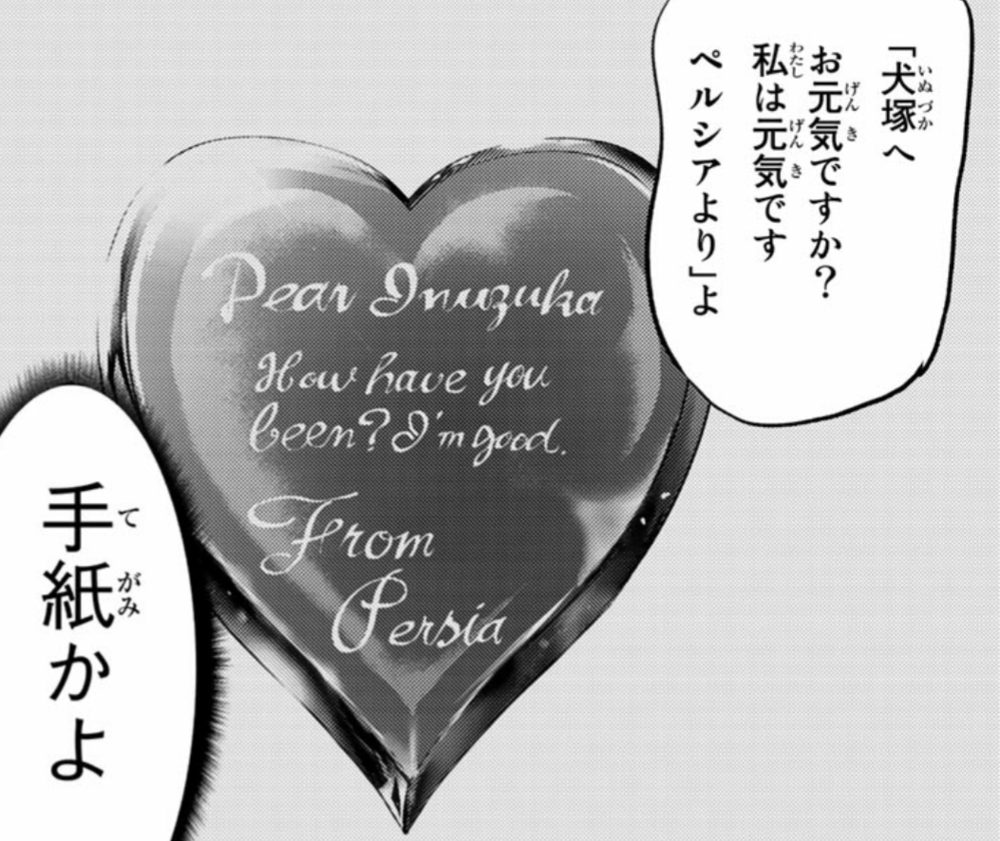 「犬塚へ
お元気ですか?
私は元気です
ペルシアより」よ
Dear Inuzuka
How have you
been? I'm good.
From
Persia
手紙かよ